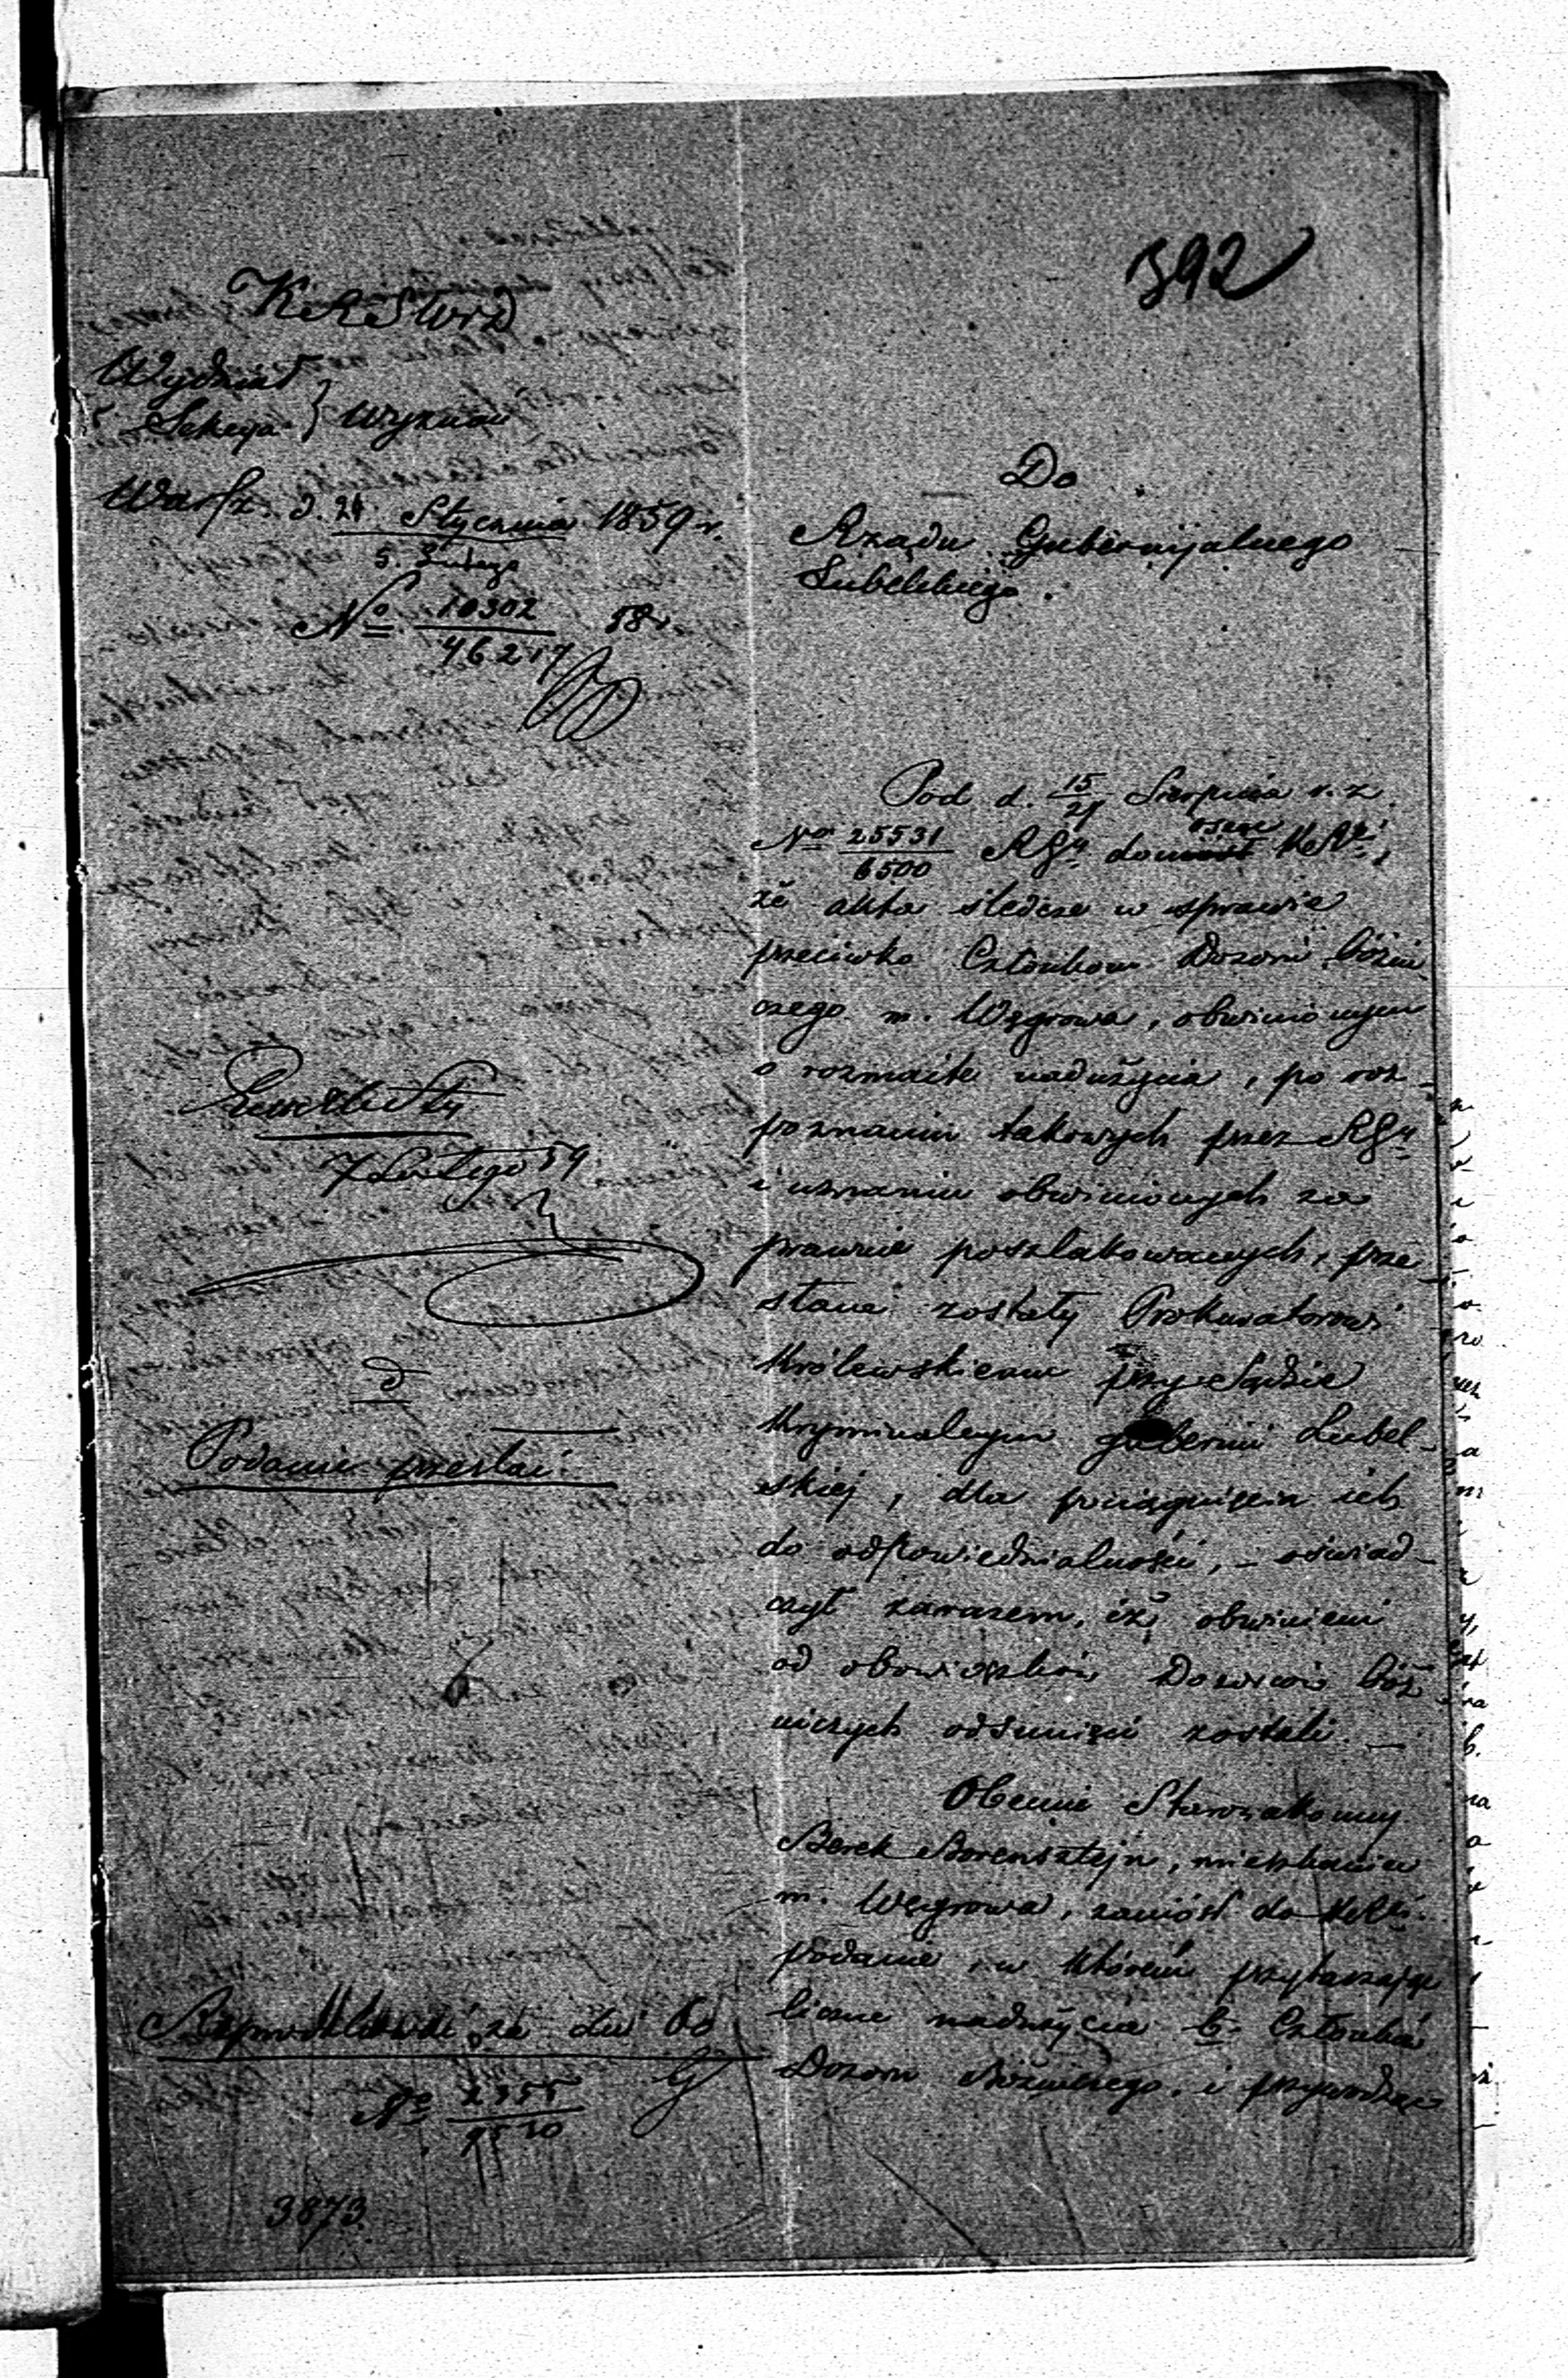 392
KRSWiD
Wydział
Sekcya } Wyznań
Warsz. d. 24 Stycznia 1859 r.
5. Lutego
No 10302 58 r.
46217
Do
Rządu Gubernijalnego
Lubelskiego.
Pod d. 15/27 Sierpnia r. z.
No 25531/6500 RGu donosząc KRz.,
że akta śledcze w sprawie
przeciwko Członkom Dozoru bóżni
czego m. Węgrowa, obwinionym
o rozmaite nadużycia, po roz-
poznaniu takowych przez RGu
i uznaniu obwinionych za
prawnie poszlakowanych, prze
słane zostały Prokuratorowi
Królewskiemu przy Sądzie
Kryminalnym gubernii Lubel-
skiej, dla pociągnięcia ich
do odpowiedzialności, – oświad-
czył zarazem, iż obwinieni
od obowiązków Dozorów bóż
niczych odsunięci zostali. —
Obecnie Starozakonny
Berek Borensztejn, mieszkaniec
m. Węgrowa, zaniósł do KRz.
podanie, w którém przytaczając
liczne nadużycia b. Członków
Dozoru Bóżniczego, i przywodząc
7 Lutego 59
Podanie przesłać.
No 2355
3873